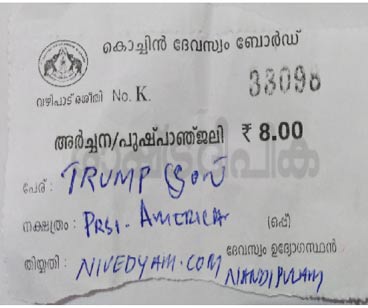 കൊച്ചിൻ ദേവസ്വം ബോർഡ്
വഴിപാട് രശീതി No. K. 33098
അർച്ചന/പുഷ്പാഞ്ജലി ₹ 8.00
പേര് : TRUMP
നക്ഷത്രം : PRSI - AMERICA (ഒപ്പ്)
ദേവസ്വം ഉദ്യോഗസ്ഥൻ
തിയ്യതി : NIVEDYAM.COM NANDIPULAM